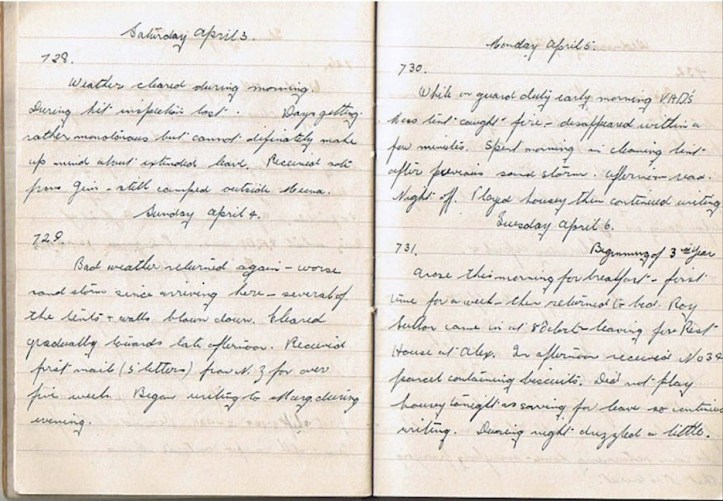 Saturday April 3.
728.
Weather cleared during morning.
During kit inspection lost . Days getting
rather monotonous but cannot definately make
up mind about extended leave. Received note
from Gin - still camped outside Meena.
Sunday April 4.
729.
Bad weather returned again - worse
sand storm since arriving here - several of
the tents + walls blown down. Cleared
gradually towards late afternoon. Received
first mail (5 letters) from N.Z for over
five week. Began writing to Marg. during
evening.
Monday April 5.
730.
While on guard duty early morning V.A.D's
mess tent caught fire - disappeared within a
few minutes. Spent morning in cleaning tent
after previous sand storm. Afternoon - read.
Night off. Played housey then continued writing
Tuesday April 6.
731. Beginning of 3rd Year
Arose this morning for breakfast - first
time for a week - then returned to bed. Roy
came in at - leaving for Rest
House at Alex. In afternoon received No 34
parcel containing biscuits. Did not play
housey tonight as saving for leave so continued
writing. During night drizzled a little.